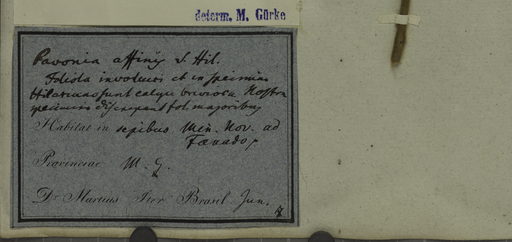 determ. M. Gürke
Pavonia affinis S. Hil.
Foliola involucri et in specimine
Hilariano sunt calyce breviora. Nostra
specimina discrepant fol. majoribus
Habitat in sepibus Min. Nov. ad
Fanado,
Provinciae M. G.
D. Martius Iter Brasil. Jun.